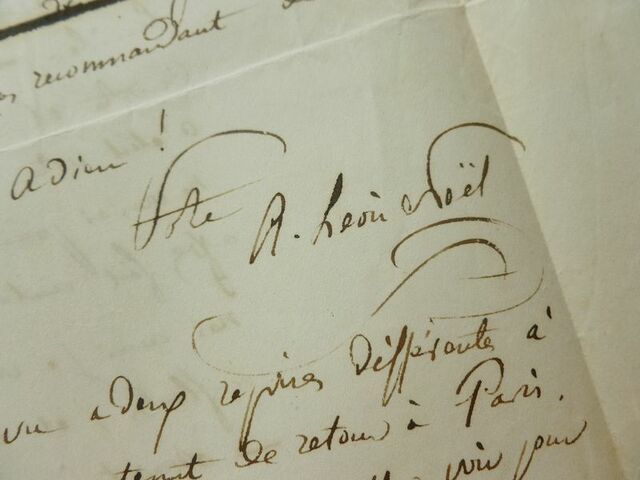 recommandant
adieu !
Vtre A. Léon Noël
vu a deux reprises différentes à
de retour à Paris.
voir pour